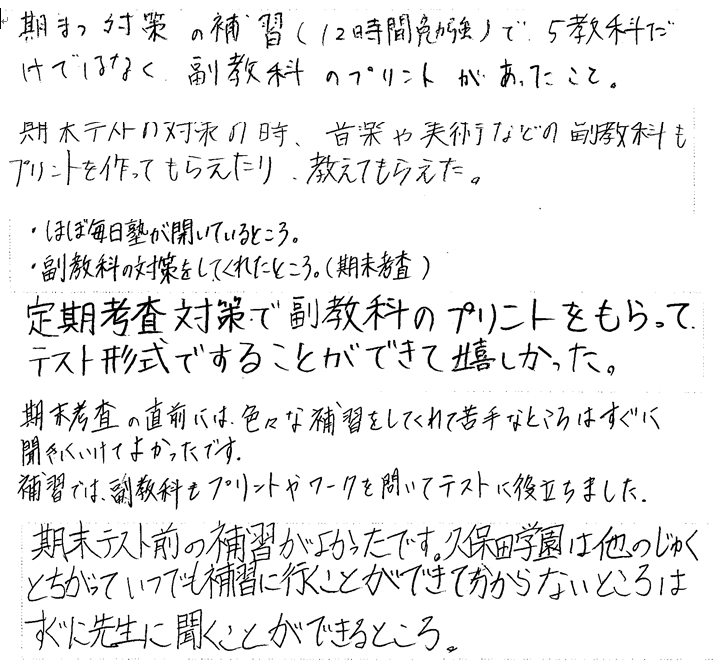 期まつ対策の補習(12時間勉強)で、5教科だ
けではなく、副教科のプリントがあったこと。
期末テストの対策の時、音楽や美術などの副教科も
プリントを作ってもらえたり、教えてもらえた。
・ほぼ毎日塾が開いているところ。
・副教科の対策をしてくれたところ。(期末考査)
定期考査対策で副教科のプリントをもらって、
テスト形式ですることができて嬉しかった。
期末考査の直前には、色々な補習をしてくれて苦手なところはすぐに
聞きにいけてよかったです。
補習では、副教科もプリントやワークを問いてテストに役立ちました。
期末テスト前の補習がよかったです。久保田学園は他のじゅく
とちがっていつでも補習に行くことができて分からないところは
すぐに先生に聞くことができるところ。